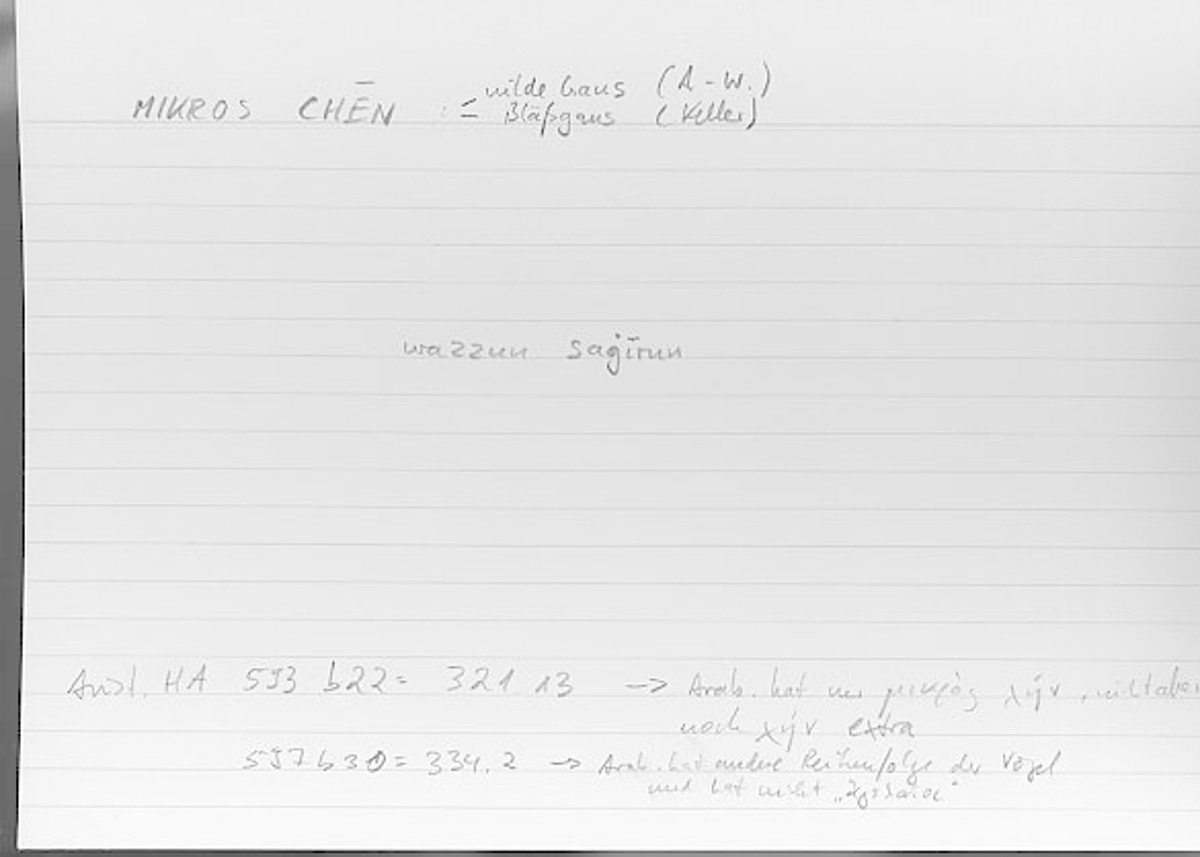 wilde Gans (A-W.)
MIKROS CHĒN := Bläßgans (Keller)
wazzun ṣaġīrun
Arist. HA 593 b22 = 321 13 -> Arab. hat nur μικρὸς χήν, nicht aber
noch χήν extra
597 b30 = 334.2 -> Arab. hat andere Reihenfolge der Vögel
und hat nicht